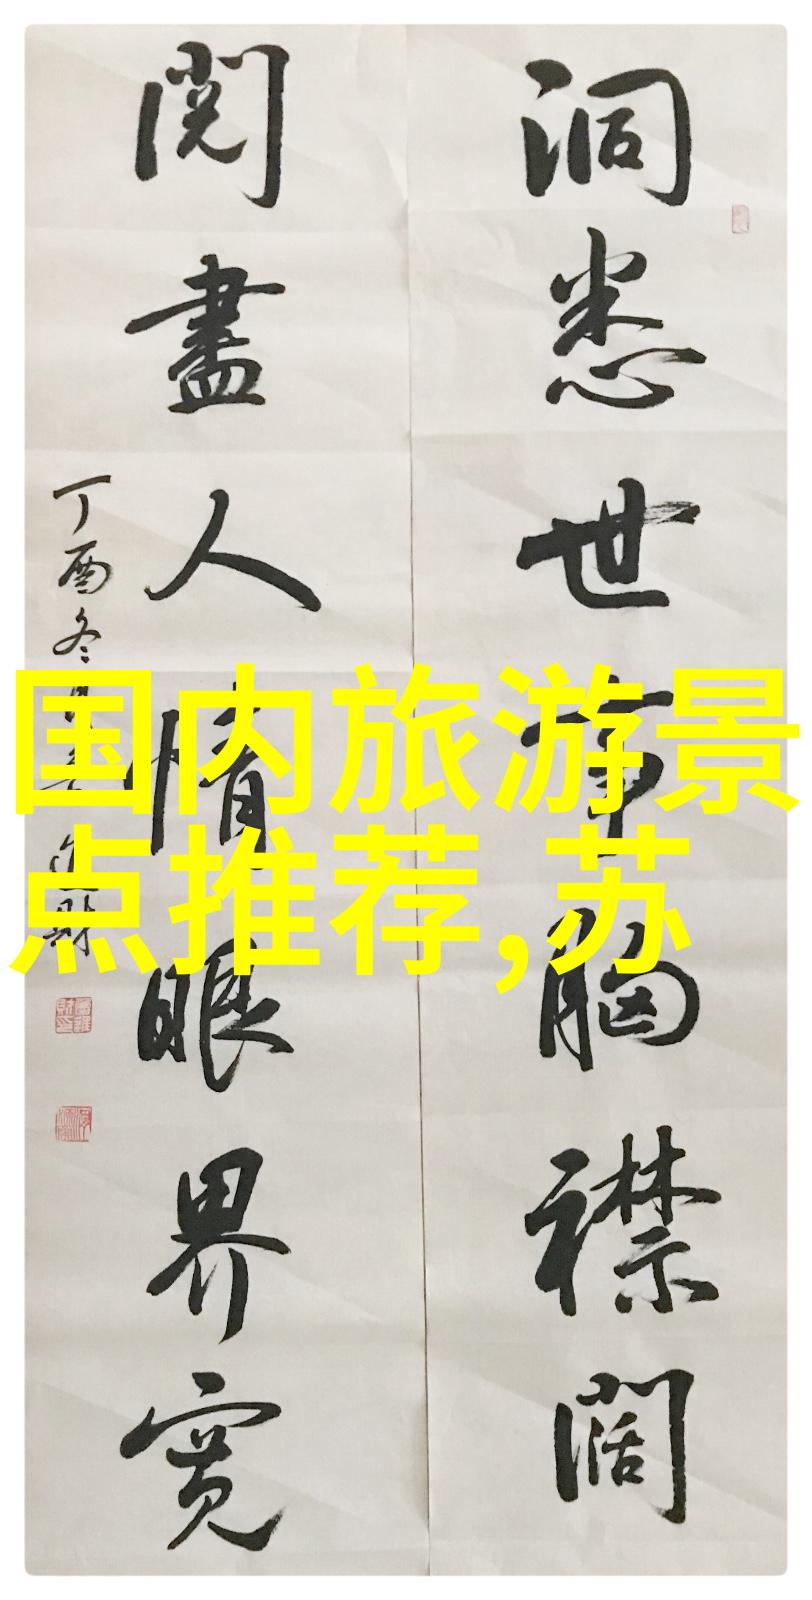 洞悉世事胸襟阔
阅尽人情眼界宽
丁酉冬月
进财
国内旅游景
点推荐,苏